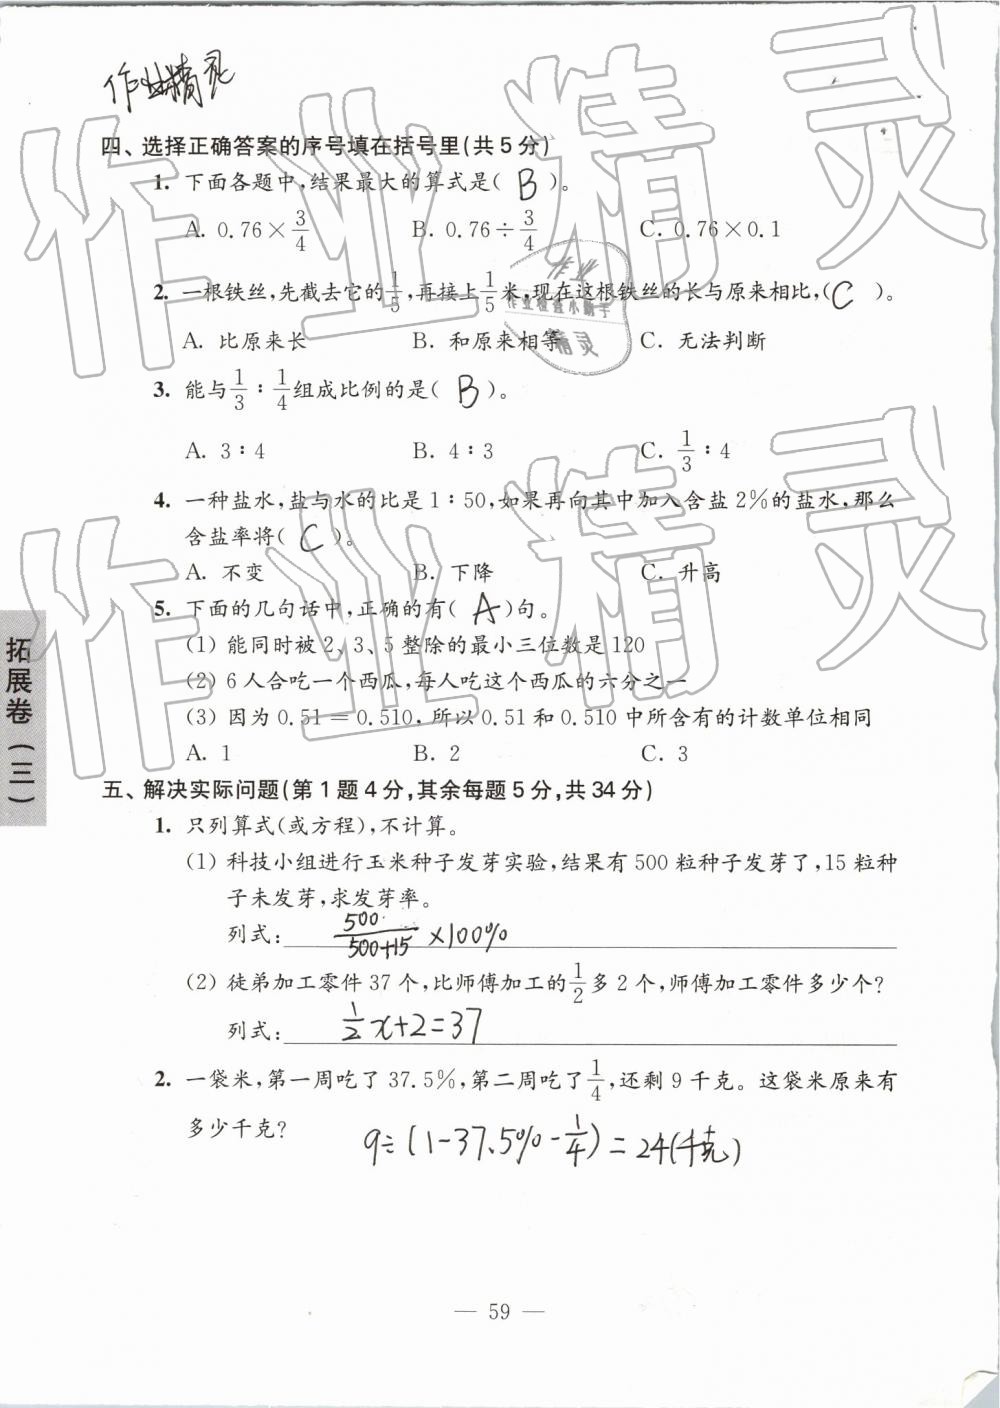 作业精灵
四、选择正确答案的序号填在括号里(共5分)
1. 下面各题中,结果最大的算式是( B )。
A. 0.76×3/4 B. 0.76÷3/4 C. 0.76×0.1
2. 一根铁丝,先截去它的1/5,再接上1/5米,现在这根铁丝的长与原来相比,( C )。
A. 比原来长 B. 和原来相等 C. 无法判断
3. 能与1/3∶1/4组成比例的是( B )。
A. 3∶4 B. 4∶3 C. 1/3∶4
4. 一种盐水,盐与水的比是1∶50,如果再向其中加入含盐2%的盐水,那么
含盐率将( C )。
A. 不变 B. 下降 C. 升高
5. 下面的几句话中,正确的有( A )句。
(1) 能同时被2、3、5整除的最小三位数是120
(2) 6人合吃一个西瓜,每人吃这个西瓜的六分之一
(3) 因为0.51=0.510,所以0.51和0.510中所含有的计数单位相同
A. 1 B. 2 C. 3
五、解决实际问题(第1题4分,其余每题5分,共34分)
1. 只列算式(或方程),不计算。
(1) 科技小组进行玉米种子发芽实验,结果有500粒种子发芽了,15粒种
子未发芽,求发芽率。
列式: 500/(500+15) ×100%
(2) 徒弟加工零件37个,比师傅加工的1/2多2个,师傅加工零件多少个?
列式: 1/2x+2=37
2. 一袋米,第一周吃了37.5%,第二周吃了1/4,还剩9千克。这袋米原来有
多少千克?
9÷(1-37.5%-1/4)=24(千克)
— 59 —
拓展卷(三)
作业精灵
作业精灵
作业
作业检查小助手
精灵